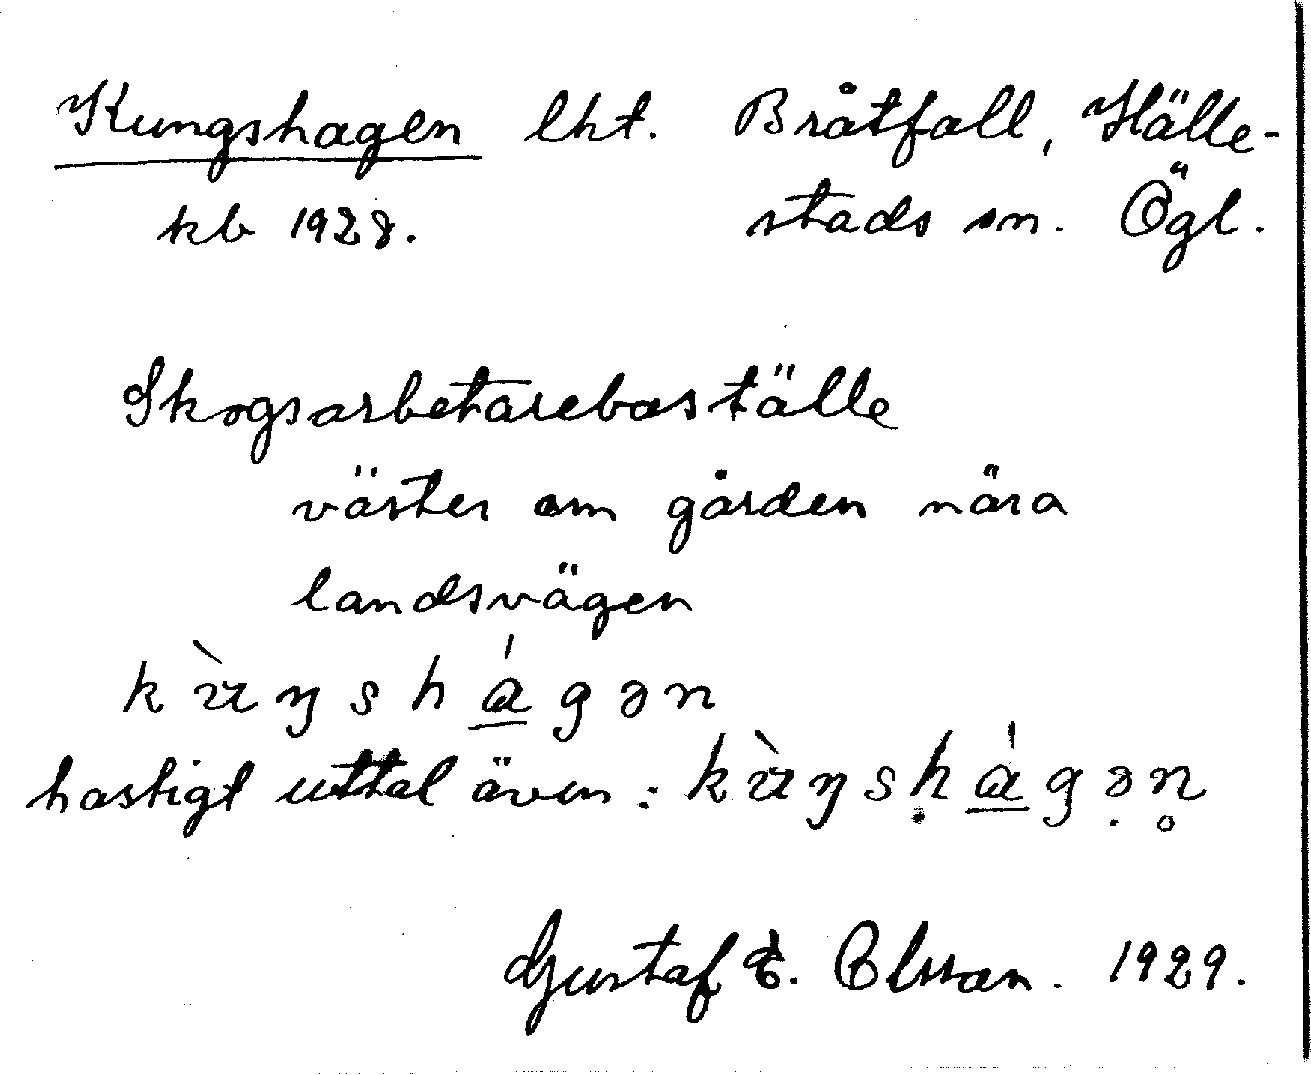 Kungshagen lht. Bråtfall, Hälle-
kb 1928. stads sn. Ögl.
Skogsarbetareboställe
väster om gården nära
landsvägen
kùŋshágən
hastigt uttal även: kùŋsḥágə̣n̥
Gustaf E. Olsson. 1929.